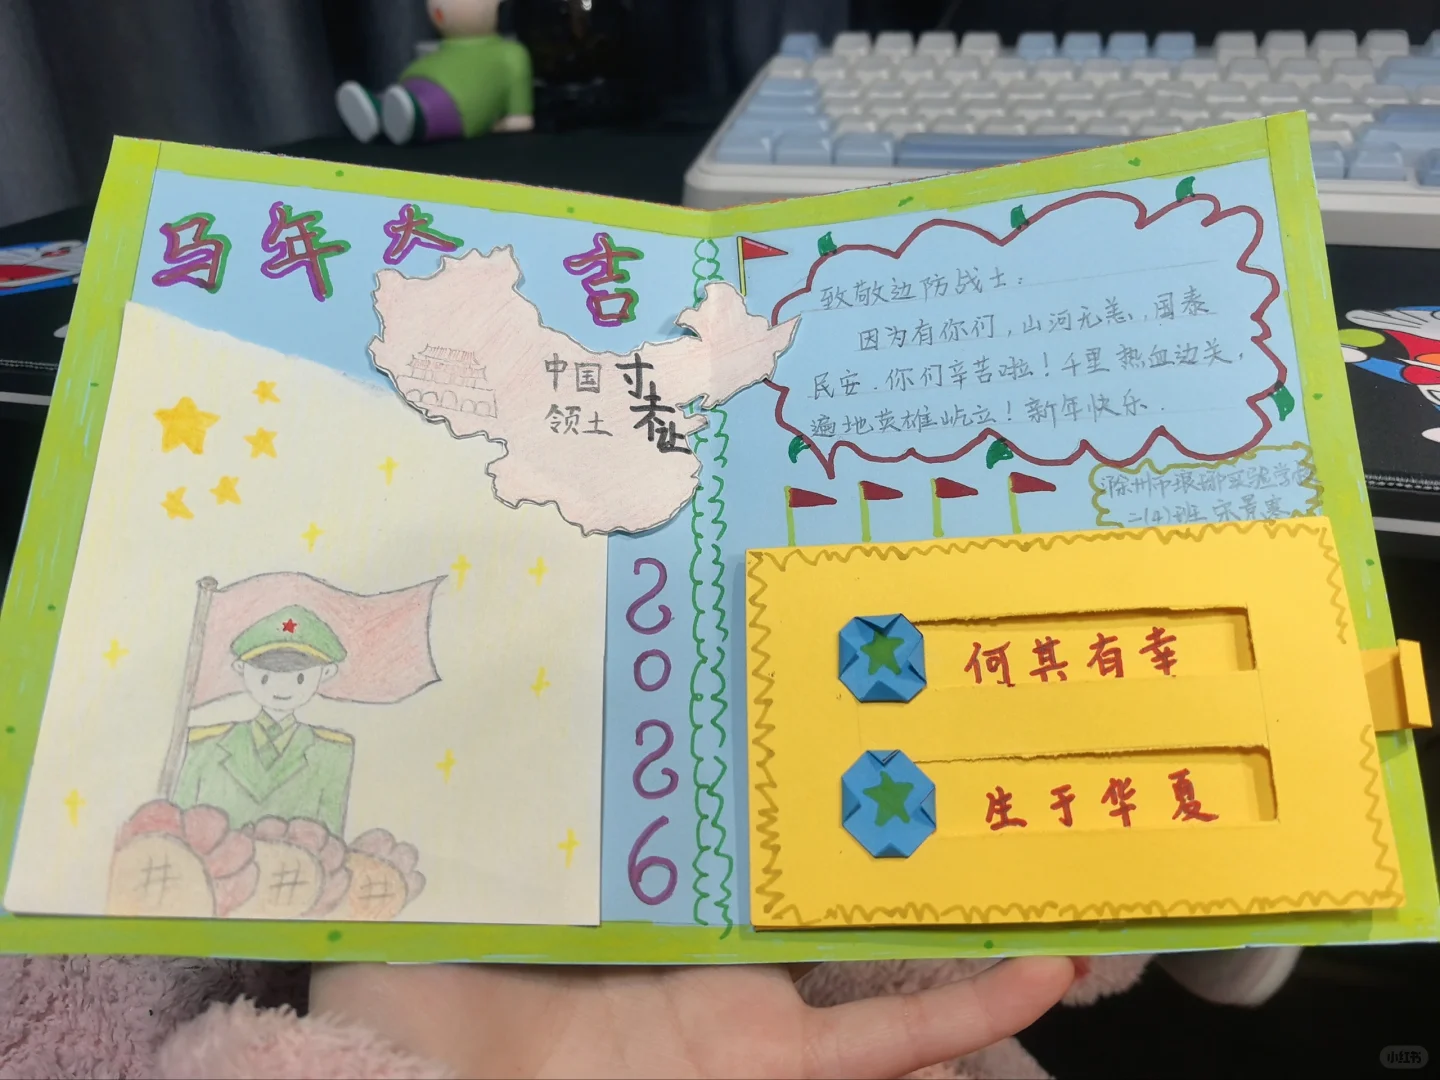 马年大吉
中国
领土
寸土不让
2026
致敬边防战士：
因为有你们，山河无恙，国泰
民安．你们辛苦啦！千里热血边关，
遍地英雄屹立！新年快乐．
滁州市琅琊实验学校
二(4)班
何其有幸
生于华夏
小红书